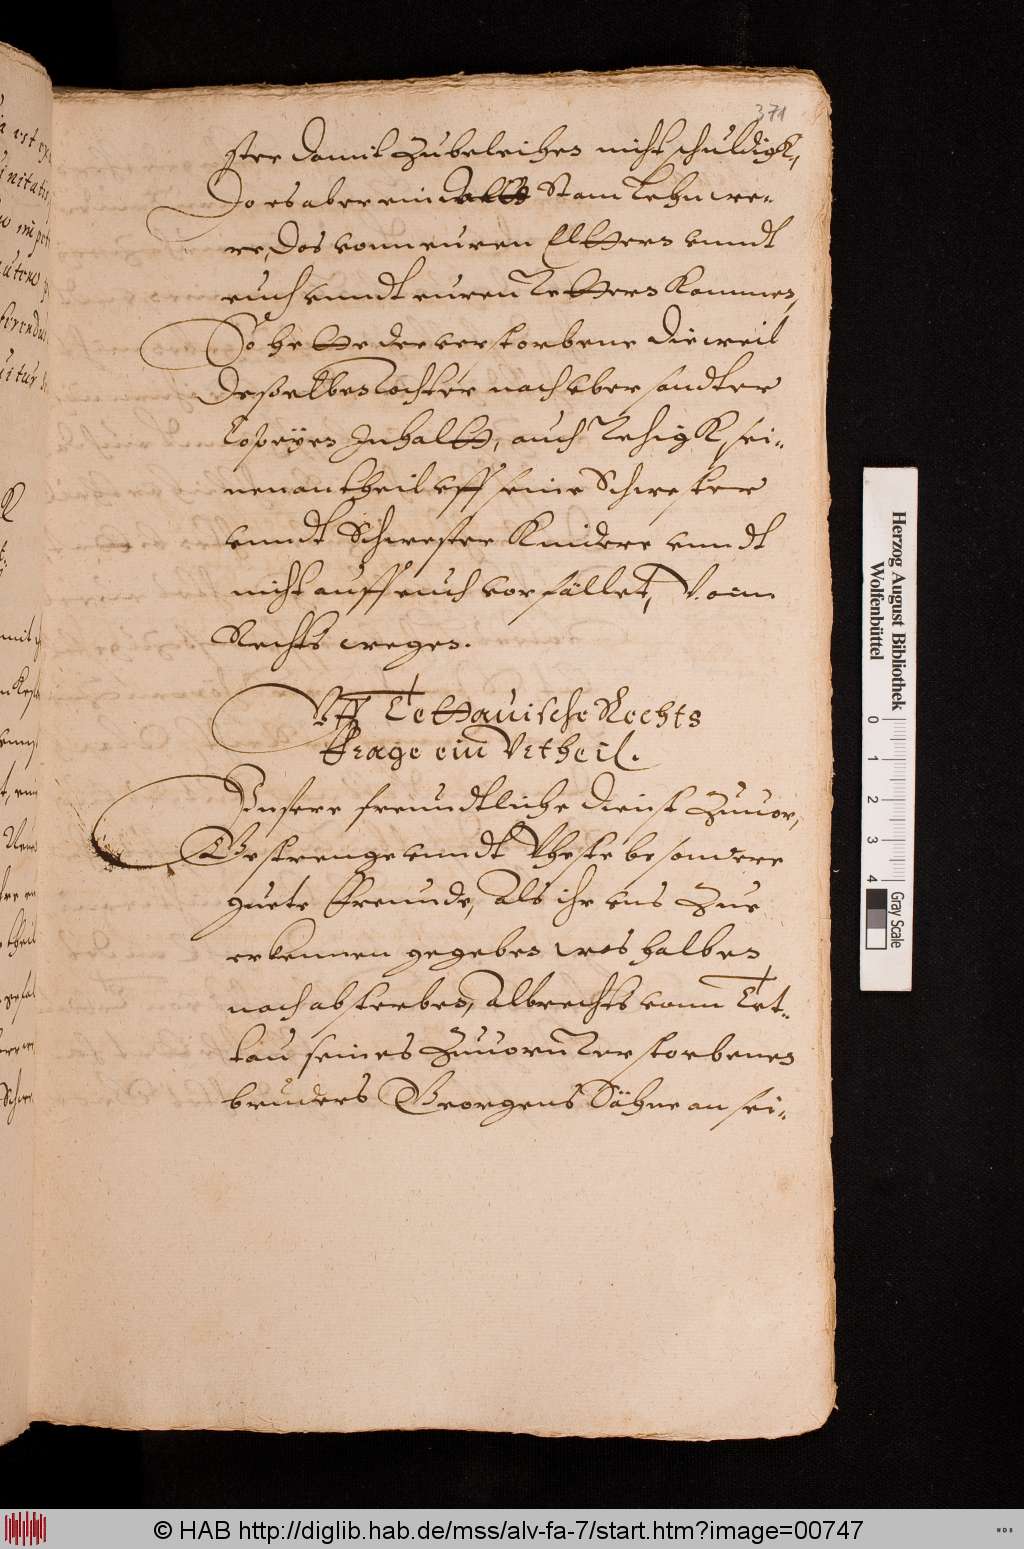 371
ster damit zubeleihen nicht schuldigk,
Do es aber ein Stam Lehn we-
re, das vonn euren Eltern vnndt
euch vnndt euren Vettern kommen,
So hette der verstorbene dieweil
deßelben tochter nach vbersandter
Copeyen Inhaltt, auch Lehigk, sei-
nen antheil vff seine Schwester
vnndt Schwester Kindere vnndt
nicht auff euch verfället, Vonn
Rechts wegen.
Vff Tettauische Rechts
Frage ein Vrtheil.
Vnsere freundtliche dienst zuuor,
Gestrenge vnndt Vheste besondere
guete Freunde, Als ihr vns zue
erkennen gegeben was halben
nach absterben, Albrechts vonn Tet-
tau seines zuuorn Verstorbenen
bruders Georgens Söhne an sei-
Herzog August Bibliothek
Wolfenbüttel
0 1 2 3 4
Gray Scale
© HAB http://diglib.hab.de/mss/alv-fa-7/start.htm?image=00747